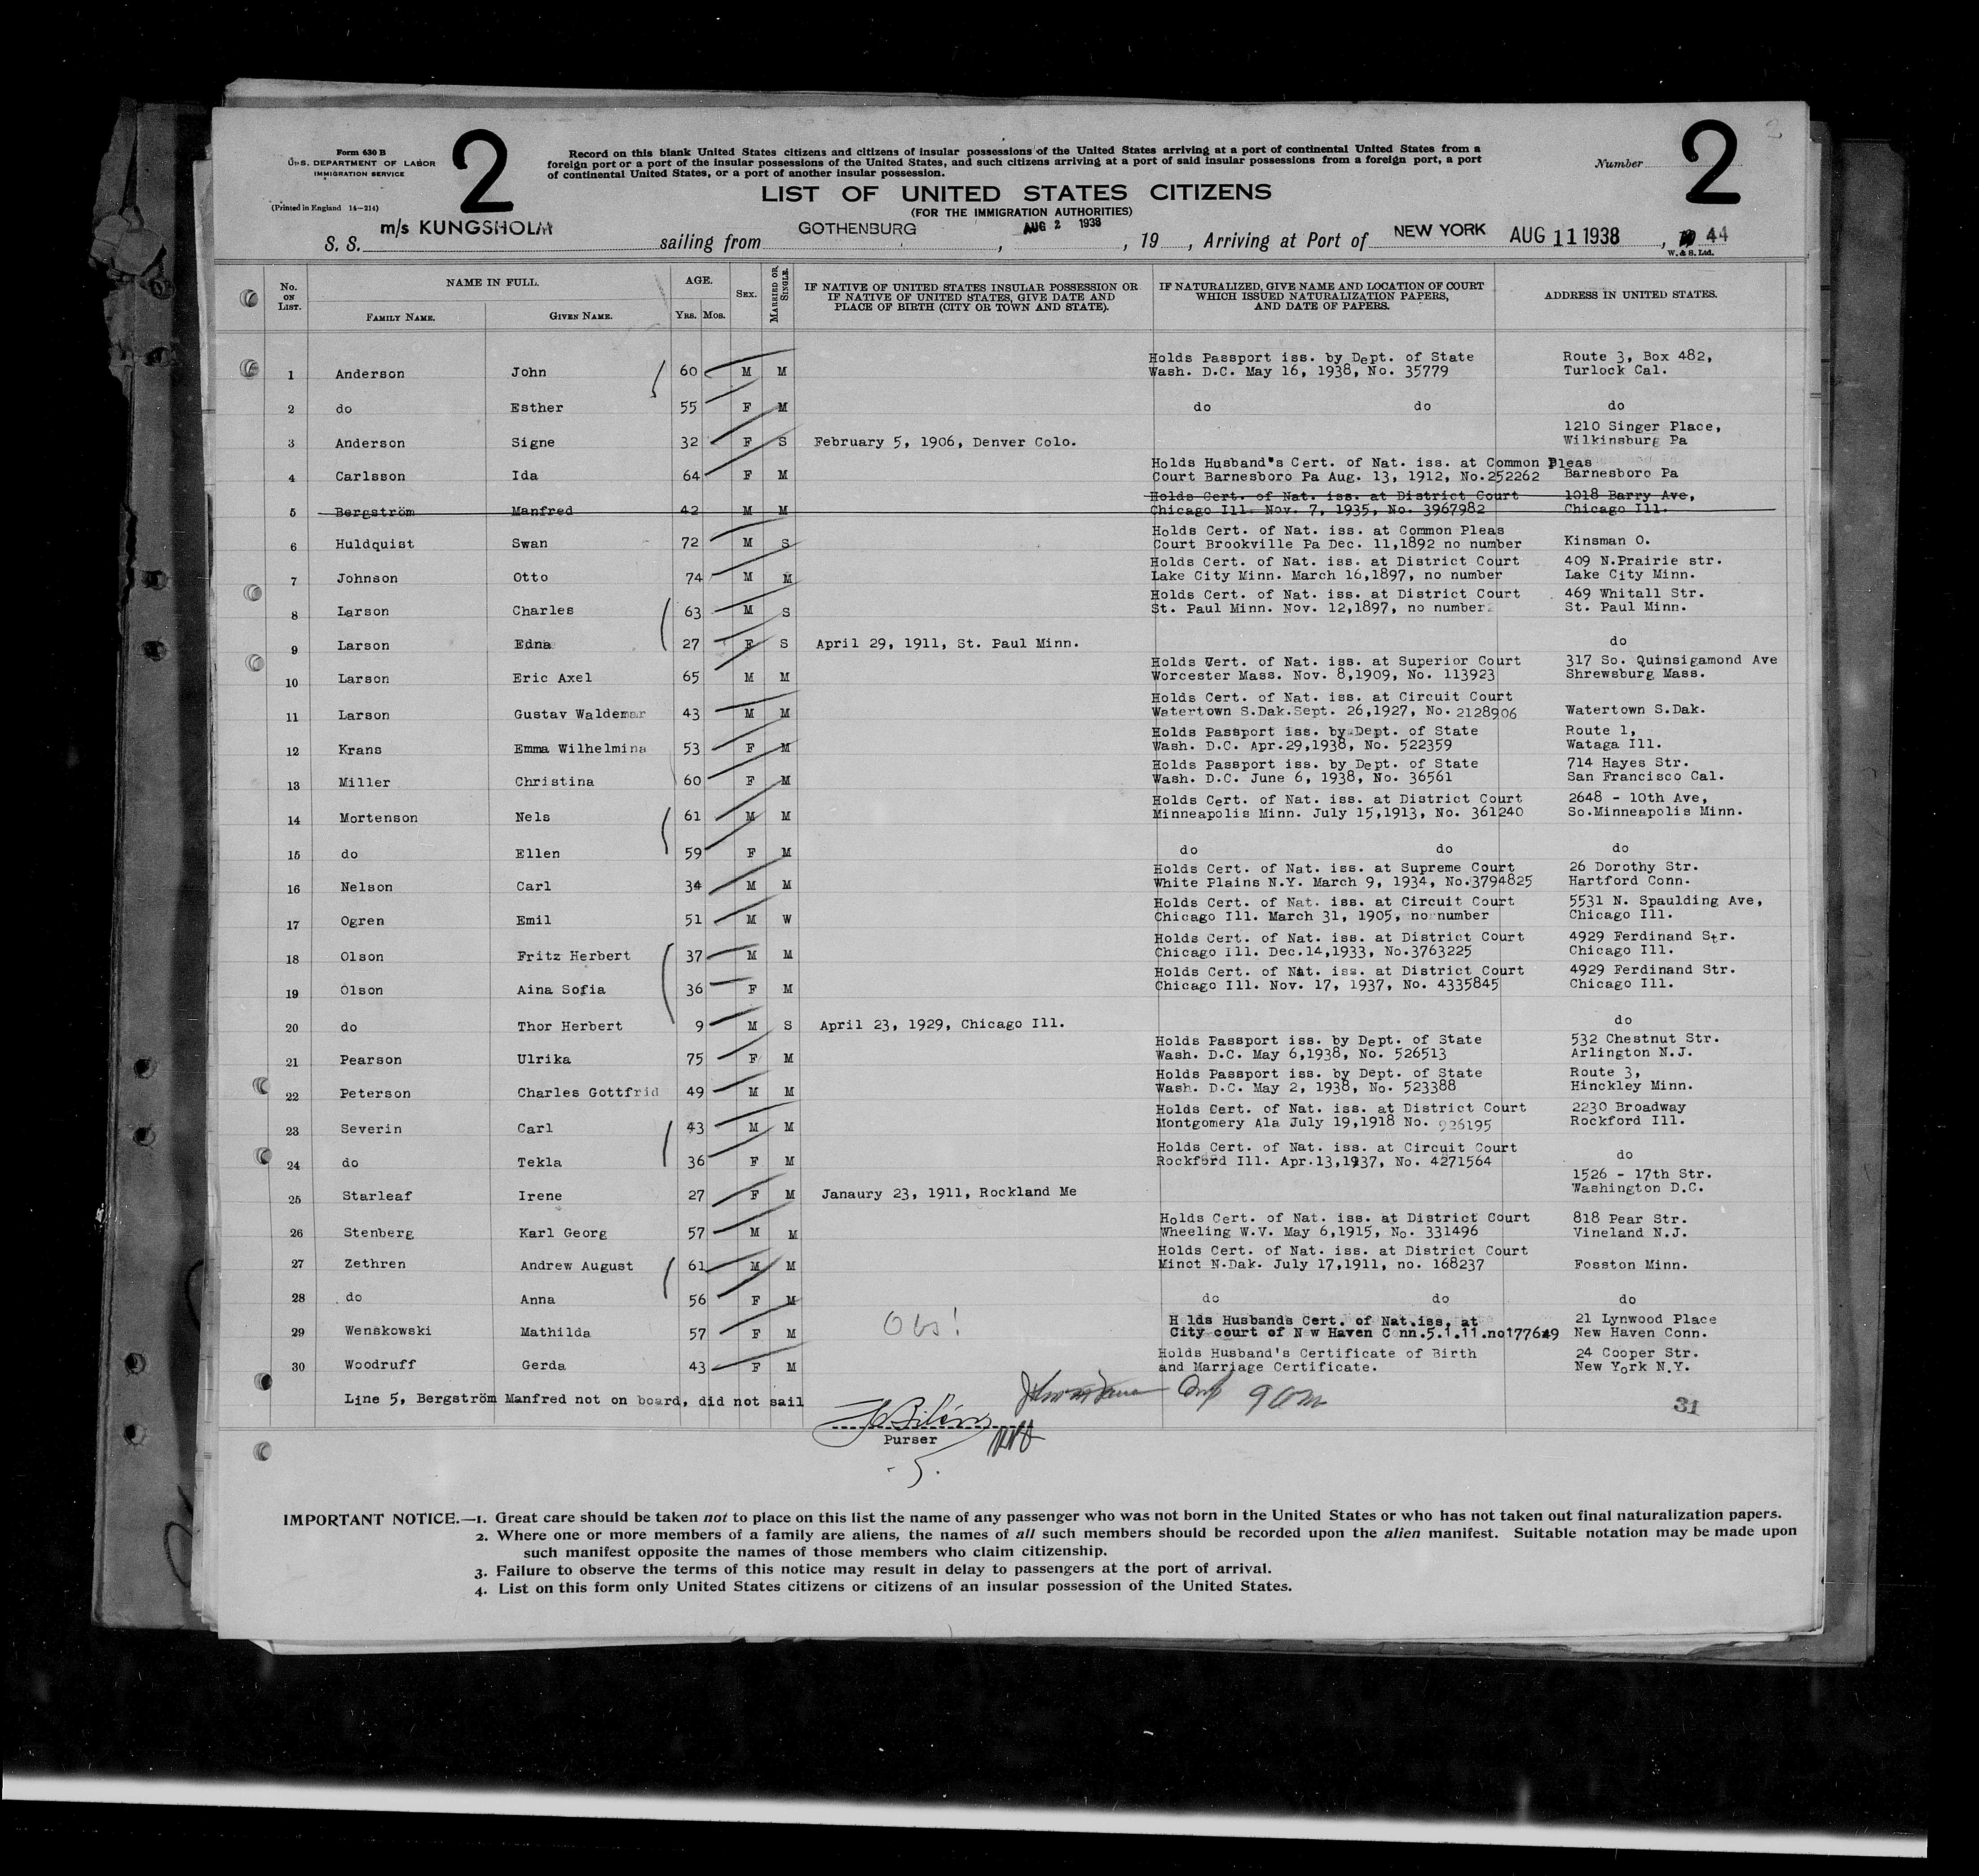 Form 630 B
U.S. DEPARTMENT OF LABOR
IMMIGRATION SERVICE
(Printed in England 14—214)
2
Record on this blank United States citizens and citizens of insular possessions of the United States arriving at a port of continental United States from a
foreign port or a port of the insular possessions of the United States, and such citizens arriving at a port of said insular possessions from a foreign port, a port
of continental United States, or a port of another insular possession.
Number
2
2
LIST OF UNITED STATES CITIZENS
(FOR THE IMMIGRATION AUTHORITIES)
S. S. m/s KUNGSHOLM sailing from GOTHENBURG, AUG 2 1938, 19 , Arriving at Port of NEW YORK AUG 11 1938, 44
W. & S. Ltd.
No. ON LIST. NAME IN FULL. FAMILY NAME. GIVEN NAME. AGE. YRS. MOS. SEX. MARRIED OR SINGLE. IF NATIVE OF UNITED STATES INSULAR POSSESSION OR IF NATIVE OF UNITED STATES, GIVE DATE AND PLACE OF BIRTH (CITY OR TOWN AND STATE). IF NATURALIZED, GIVE NAME AND LOCATION OF COURT WHICH ISSUED NATURALIZATION PAPERS, AND DATE OF PAPERS. ADDRESS IN UNITED STATES.
Holds Passport iss. by Dept. of State Route 3, Box 482,
1 Anderson John 60 M M Wash. D.C. May 16, 1938, No. 35779 Turlock Cal.
2 do Esther 55 F M do do do
1210 Singer Place,
3 Anderson Signe 32 F S February 5, 1906, Denver Colo. Wilkinsburg Pa
Holds Husband's Cert. of Nat. iss. at Common Pleas
4 Carlsson Ida 64 F M Court Barnesboro Pa Aug. 13, 1912, No.252262 Barnesboro Pa
Holds Cert. of Nat. iss. at District Court 1018 Barry Ave,
5 Bergström Manfred 42 M M Chicago Ill. Nov. 7, 1935, No. 3967982 Chicago Ill.
Holds Cert. of Nat. iss. at Common Pleas
6 Huldquist Swan 72 M S Court Brookville Pa Dec. 11,1892 no number Kinsman O.
Holds Cert. of Nat. iss. at District Court 409 N.Prairie str.
7 Johnson Otto 74 M M Lake City Minn. March 16,1897, no number Lake City Minn.
Holds Cert. of Nat. iss. at District Court 469 Whitall Str.
8 Larson Charles 63 M S St. Paul Minn. Nov. 12,1897, no number St. Paul Minn.
9 Larson Edna 27 F S April 29, 1911, St. Paul Minn. do
Holds Cert. of Nat. iss. at Superior Court 317 So. Quinsigamond Ave
10 Larson Eric Axel 65 M M Worcester Mass. Nov. 8,1909, No. 113923 Shrewsburg Mass.
Holds Cert. of Nat. iss. at Circuit Court
11 Larson Gustav Waldemar 43 M M Watertown S.Dak.Sept. 26,1927, No. 2128906 Watertown S.Dak.
Holds Passport iss. by Dept. of State Route 1,
12 Krans Emma Wilhelmina 53 F M Wash. D.C. Apr.29,1938, No. 522359 Wataga Ill.
Holds Passport iss. by Dept. of State 714 Hayes Str.
13 Miller Christina 60 F M Wash. D.C. June 6, 1938, No. 36561 San Francisco Cal.
Holds Cert. of Nat. iss. at District Court 2648 - 10th Ave,
14 Mortenson Nels 61 M M Minneapolis Minn. July 15,1913, No. 361240 So.Minneapolis Minn.
15 do Ellen 59 F M do do do
Holds Cert. of Nat. iss. at Supreme Court 26 Dorothy Str.
16 Nelson Carl 34 M M White Plains N.Y. March 9, 1934, No.3794825 Hartford Conn.
Holds Cert. of Nat. iss. at Circuit Court 5531 N. Spaulding Ave,
17 Ogren Emil 51 M W Chicago Ill. March 31, 1905, no number Chicago Ill.
Holds Cert. of Nat. iss. at District Court 4929 Ferdinand Str.
18 Olson Fritz Herbert 37 M M Chicago Ill. Dec.14,1933, No.3763225 Chicago Ill.
Holds Cert. of Nat. iss. at District Court 4929 Ferdinand Str.
19 Olson Aina Sofia 36 F M Chicago Ill. Nov. 17, 1937, No. 4335845 Chicago Ill.
20 do Thor Herbert 9 M S April 23, 1929, Chicago Ill. do
Holds Passport iss. by Dept. of State 532 Chestnut Str.
21 Pearson Ulrika 75 F M Wash. D.C. May 6,1938, No. 526513 Arlington N.J.
Holds Passport iss. by Dept. of State Route 3,
22 Peterson Charles Gottfrid 49 M M Wash. D.C. May 2, 1938, No. 523388 Hinckley Minn.
Holds Cert. of Nat. iss. at District Court 2230 Broadway
23 Severin Carl 43 M M Montgomery Ala July 19,1918 No. 926195 Rockford Ill.
Holds Cert. of Nat. iss. at Circuit Court
24 do Tekla 36 F M Rockford Ill. Apr.13,1937, No. 4271564 do
1526 - 17th Str.
25 Starleaf Irene 27 F M Janaury 23, 1911, Rockland Me Washington D.C.
Holds Cert. of Nat. iss. at District Court 818 Pear Str.
26 Stenberg Karl Georg 57 M M Wheeling W.V. May 6,1915, No. 331496 Vineland N.J.
Holds Cert. of Nat. iss. at District Court
27 Zethren Andrew August 61 M M Minot N.Dak. July 17,1911, no. 168237 Fosston Minn.
28 do Anna 56 F M do do do
Obs! H lds Husbands Cert. of Nat.iss. at 21 Lynwood Place
29 Wenskowski Mathilda 57 F M City court of New Haven Conn.5.1.11.no177649 New Haven Conn.
Holds Husband's Certificate of Birth 24 Cooper Str.
30 Woodruff Gerda 43 F M and Marriage Certificate. New York N.Y.
Line 5, Bergström Manfred not on board, did not sail
31
Purser
5.
IMPORTANT NOTICE.—1. Great care should be taken not to place on this list the name of any passenger who was not born in the United States or who has not taken out final naturalization papers.
2. Where one or more members of a family are aliens, the names of all such members should be recorded upon the alien manifest. Suitable notation may be made upon
such manifest opposite the names of those members who claim citizenship.
3. Failure to observe the terms of this notice may result in delay to passengers at the port of arrival.
4. List on this form only United States citizens or citizens of an insular possession of the United States.